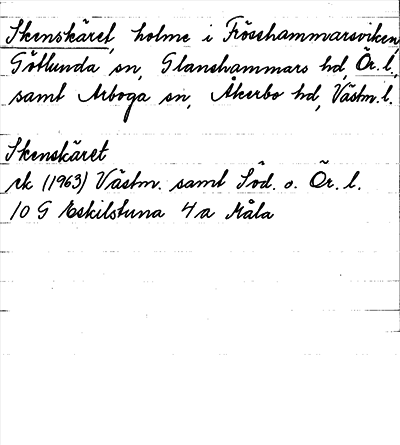 Skenskäret, holme i Frösshammarsviken,
Götlunda sn, Glanshammars hd, Ör. l.,
samt Arboga sn, Åkerbo hd, Västm. l.
Skenskäret
rk (1963) Västm. samt Söd. o. Ör. l.
10 G Eskilstuna 4a Måla